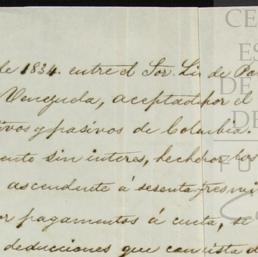 de 1834. entre el Sor. Li de Pa
Venezuela, aceptad por el
ivos y pasivos de Colombia.
ente sin interes, hechos los
ascendente á sesenta tres mi
or pagamentos á cuenta, se
deducciones que consista d
CE
ES
DE
DE
FU